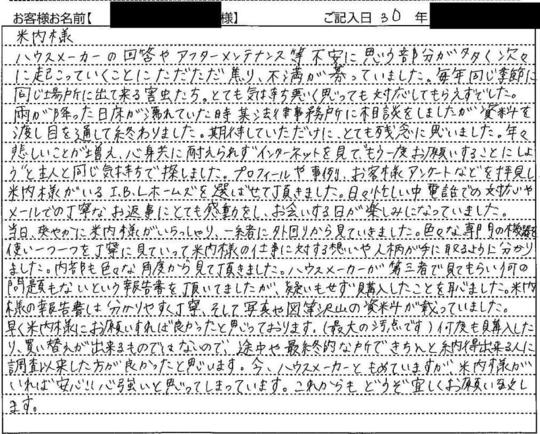 お客様お名前【 様】 ご記入日 30 年
米内様
ハウスメーカーの回答やアフターメンテナンス等不安に思う部分が多く次々
に起こっていくことにただただ焦り、不満が募っていました。毎年同じ季節に
同じ場所に出て来る害虫たち。とても気持ち悪く思っても対応してもらえずでした。
雨が降った日床が濡れていた時某法律事務所に相談をしましたが資料を
渡し目を通して終わりました。期待していただけに、とても残念に思いました。年々
悲しいことが増え、心身共に耐えられずインターネットを見て"もう一度お願いすることにしよ
う"と主人と同じ気持ちで探しました。プロフィールや事例、お客様アンケートなどを拝見し
米内様がいるI.B.Lホームズを選ばせて頂きました。日々忙しい中電話での対応や
メールでの丁寧なお返事にとても感動をし、お会いする日が楽しみになっていました。
当日、爽やかに米内様がいらっしゃり、一緒に外回りから見ていきました。色々な専門の機器を
使い一つ一つを丁寧に見ていって米内様の仕事に対する想いや人柄が手に取るように分かり
ました。内部も色々な角度から見て頂きました。ハウスメーカーが第三者で見てもらい何の
問題もないという報告書を頂いてましたが、疑いもせず購入したことを恥じました。米内
様の報告書は分かりやすく丁寧、そして写真や図等沢山の資料が載っていました。
早く米内様にお願いすれば良かったと思っております。(最大の汚点です)何度も購入した
り、買い替えが出来るものではないので、途中や最終的な所できちんと納得出来る人に
調査以来した方が良かったと思います。今、ハウスメーカーともめていますが、米内様が
いれば安心!!心強いと思ってしまっています。これからも、どうぞ宜しくお願い致し
ます。